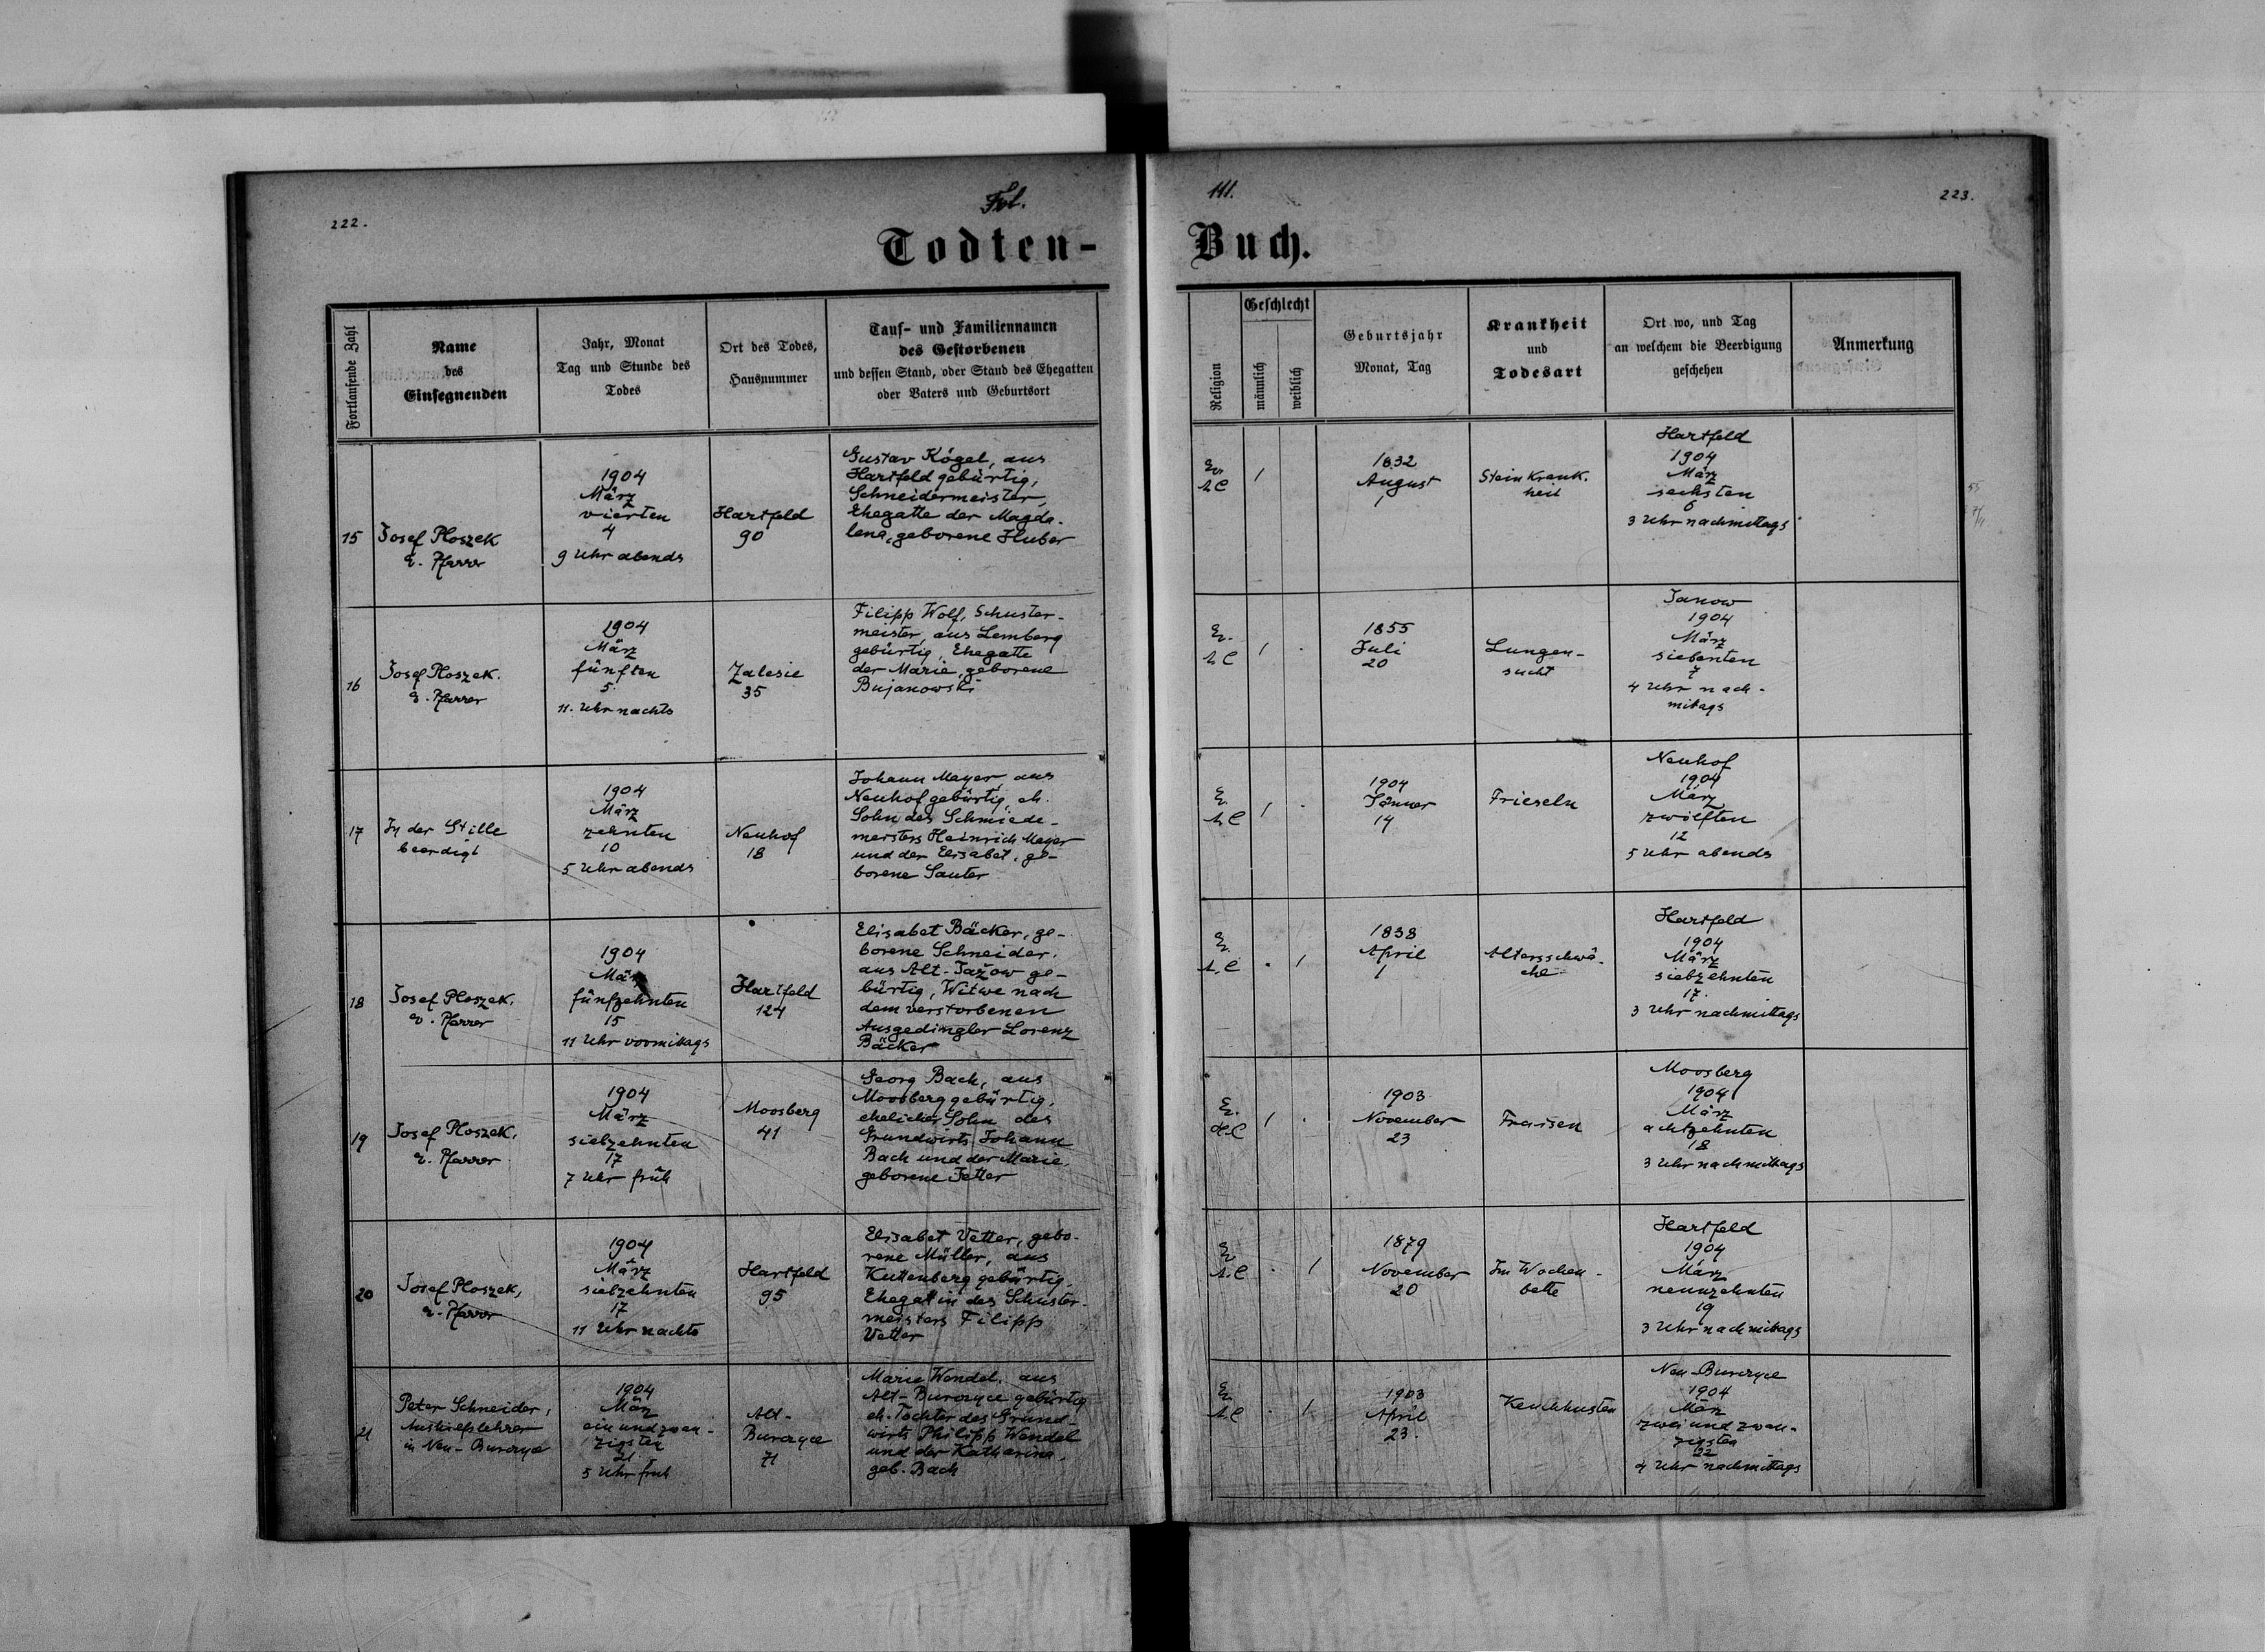 222.
Fol.
111.
223.
Todten-
Buch.
Fortlaufende Zahl
Name
des
Einsegnenden
Jahr, Monat
Tag und Stunde des
Todes
Ort des Todes,
Hausnummer
Tauf- und Familiennamen
des Gestorbenen
und dessen Stand, oder Stand des Ehegatten
oder Vaters und Geburtsort
Religion
Geschlecht
männlich
weiblich
Geburtsjahr
Monat, Tag
Krankheit
und
Todesart
Ort wo, und Tag
an welchem die Beerdigung
geschehen
Anmerkung
15
Josef Ploszek
e. Pfarrer
1904
März
vierten
4
9 Uhr abends
Hartfeld
90
Gustav Kögel, aus
Hartfeld gebürtig,
Schneidermeister,
Ehegatte der Magda-
lena, geborene Huber
Ev.
A.C
1
1832
August
1
Steinkrank.
heit
Hartfeld
1904
März
sechsten
6
3 Uhr nachmittags
16
Josef Ploszek.
e. Pfarrer
1904
März
fünften
5.
11. Uhr nachts
Zalesie
35
Filipp Wolf, Schuster-
meister, aus Lemberg
gebürtig, Ehegatte
der Marie, geborene
Bujanowski
Ev.
A.C
1
1855
Juli
20
Lungen-
sucht
Janow
1904
März
siebenten
7
4 Uhr nach-
mitags
17
In der Stille
beerdigt
1904
März
zehnten
10
5 Uhr abends
Neuhof
18
Johann Mayer aus
Neuhof gebürtig, eh.
Sohn des Schmiede-
meisters Heinrich Mayer
und der Elisabet, ge-
borene Sauter
Ev.
A.C
1
1904
Jänner
14
Frieseln
Neuhof
1904
März
zwölften
12
5 Uhr abends
18
Josef Ploszek.
e. Pfarrer
1904
März
fünfzehnten
15
11 Uhr vormitags
Hartfeld
124
Elisabet Bäcker, ge-
borene Schneider,
aus Alt-Jažow ge-
bürtig, Witwe nach
dem verstorbenen
Ausgedingler Lorenz
Bäcker
Ev.
A.C
1
1838
April
1
Altersschwä-
che
Hartfeld
1904
März
siebzehnten
17.
3 Uhr nachmittags
19
Josef Ploszek,
e. Pfarrer
1904
März
siebzehnten
17
7 Uhr früh
Moosberg
41
Georg Bach, aus
Moosberg gebürtig,
ehelicher Sohn des
Grundwirts Johann
Bach und der Marie,
geborene Jetter
Ev.
H.C
1
1903
November
23
Fraisen
Moosberg
1904
März
achtzehnten
18
3 Uhr nachmittags
20
Josef Ploszek,
e. Pfarrer
1904
März
siebzehnten
17
11 Uhr nachts
Hartfeld
95
Elisabet Vetter, gebo-
rene Müller, aus
Kuttenberg gebürtig,
Ehegattin des Schuster-
meisters Filipp
Vetter
Ev.
A.C
1
1879
November
20
Im Wochen-
bette
Hartfeld
1904
März
neunzehnten
19
3 Uhr nachmitags
21
Peter Schneider,
Aushielfslehrer
in Neu-Burczyce
1904
März
einundzwan-
zigsten
21
5 Uhr früh
Alt-
Burczyce
71
Marie Wendel, aus
Alt-Burczyce gebürtig
eh. Tochter des Grund-
wirts Philipp Wendel
und der Katharina,
geb. Bach
Ev.
A.C
1
1903
April
23.
Keuchhusten
Neu-Burczyce
1904
März
zweiundzwan-
zigsten
22
4 Uhr nachmittags